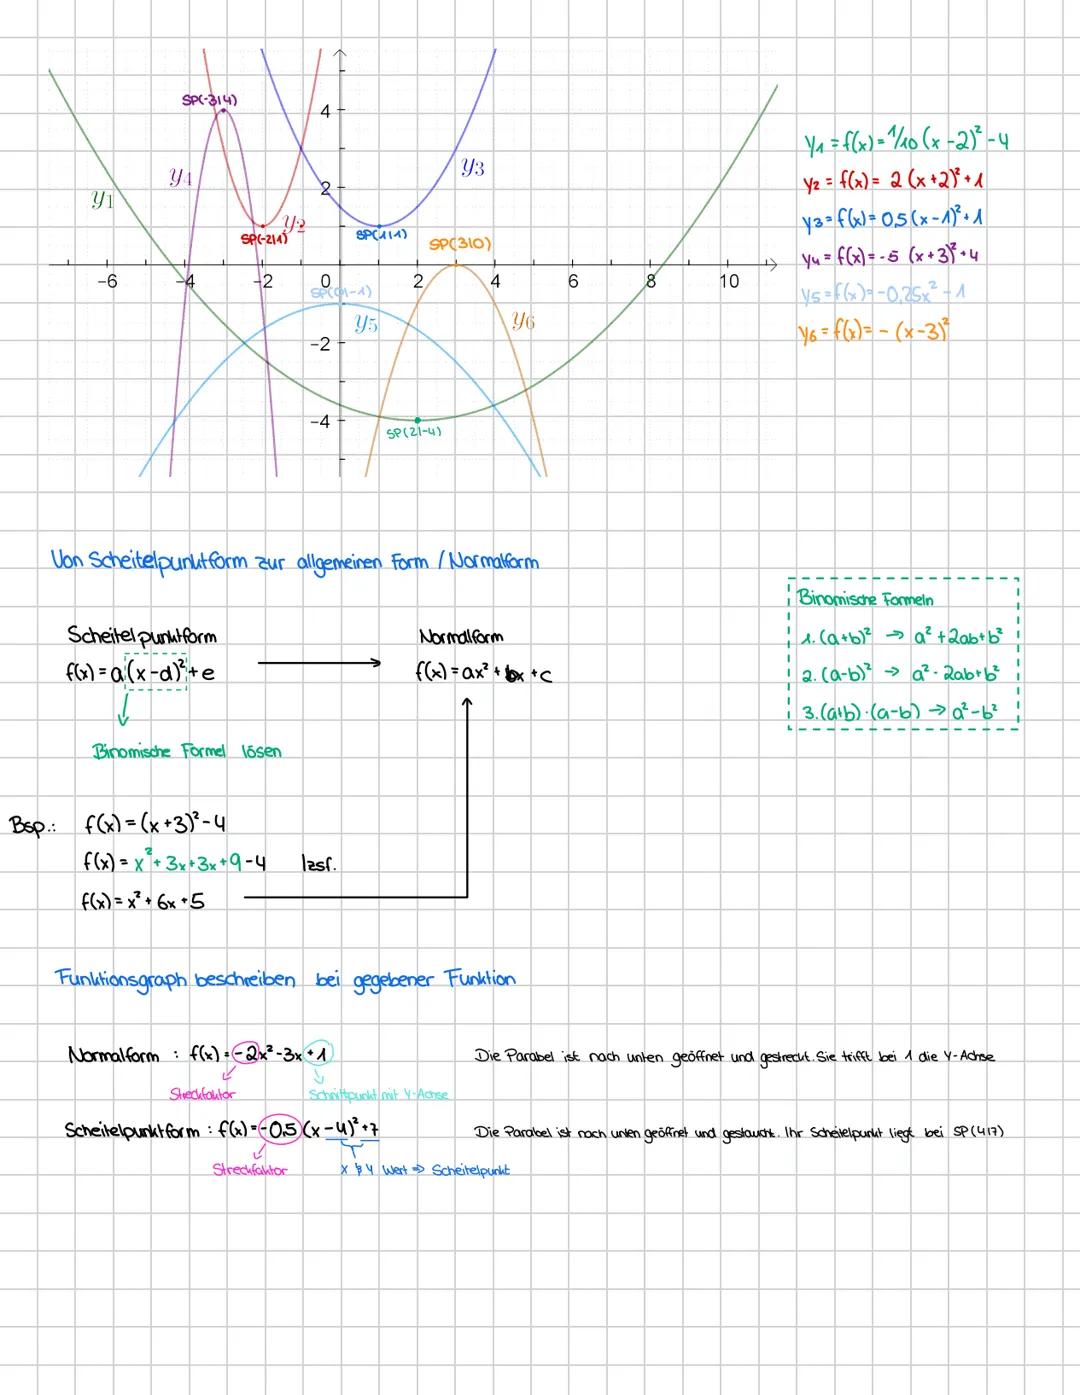 SP(-3|4)
4
y4
y3
y1
2
y2
SP(-2|1)
SP(1|1)
SP(3|0)
-6 -4 -2 0 2 4 6 8 10
SP(0|-1)
y5
y6
-2
-4
SP(2|-4)
y1 = f(x) = 1/10 (x - 2)² - 4
y2 = f(x) = 2 (x + 2)² + 1
y3 = f(x) = 0,5 (x - 1)² + 1
y4 = f(x) = -5 (x + 3)² + 4
y5 = f(x) = -0,25x² - 1
y6 = f(x) = - (x - 3)²
Von Scheitelpunktform zur allgemeinen Form / Normalform
Scheitelpunktform
f(x) = a (x - d)² + e
Binomische Formel lösen
Normalform
f(x) = ax² + bx + c
Binomische Formeln
1. (a+b)² → a² + 2ab + b²
2. (a-b)² → a² - 2ab + b²
3. (a+b) · (a-b) → a² - b²
Bsp.: f(x) = (x + 3)² - 4
f(x) = x² + 3x + 3x + 9 - 4 |zsf.
f(x) = x² + 6x + 5
Funktionsgraph beschreiben bei gegebener Funktion
Normalform : f(x) = -2x² - 3x + 1
Die Parabel ist nach unten geöffnet und gestreckt. Sie trifft bei 1 die Y-Achse
Streckfaktor
Schnittpunkt mit Y-Achse
Scheitelpunktform : f(x) = -0,5 (x - 4)² + 7
Die Parabel ist nach unten geöffnet und gestaucht. Ihr Scheitelpunkt liegt bei SP(4|7)
Streckfaktor
X & Y Wert ⇒ Scheitelpunkt